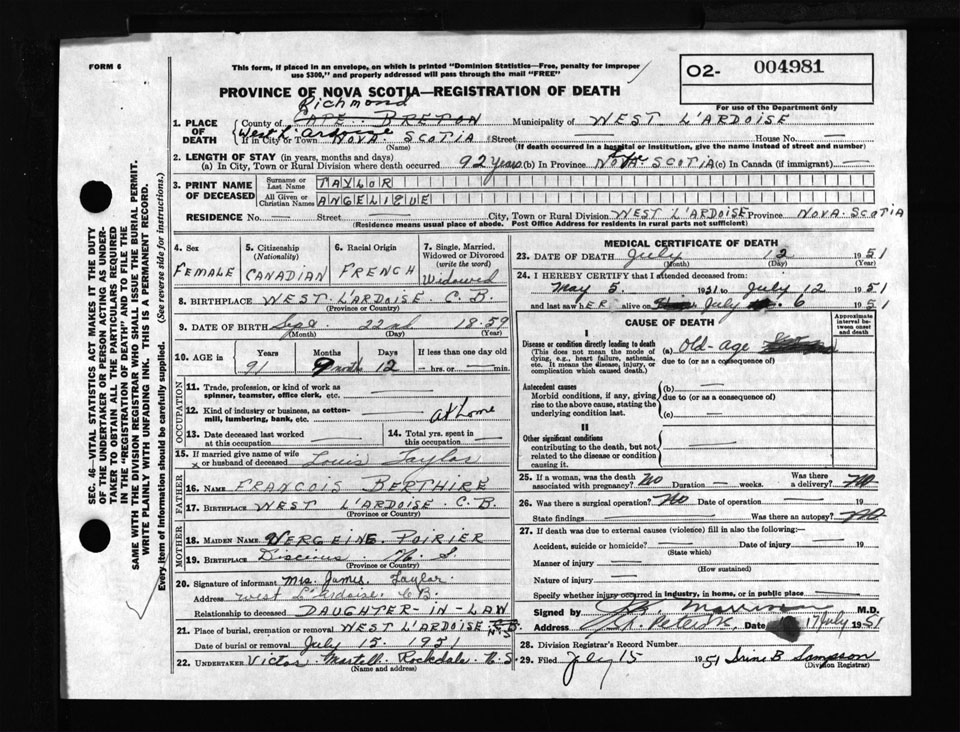 FORM 6
This form, if placed in an envelope, on which is printed "Dominion Statistics—Free, penalty for improper
use $300," and properly addressed will pass through the mail "FREE"
02- 004981
PROVINCE OF NOVA SCOTIA—REGISTRATION OF DEATH
For use of the Department only
Richmond
1. PLACE OF DEATH County of CAPE BRETON Municipality of WEST L'ARDOISE
West L'ardoise
If in City or Town NOVA SCOTIA Street — House No. —
(Name) (If death occurred in a hospital or institution, give the name instead of street and number)
2. LENGTH OF STAY (in years, months and days)
(a) In City, Town or Rural Division where death occurred 92 years (b) In Province NOVA SCOTIA (c) In Canada (if immigrant) —
3. PRINT NAME OF DECEASED Surname or Last Name TAYLOR
All Given or Christian Names ANGELIQUE
RESIDENCE No. — Street — City, Town or Rural Division WEST L'ARDOISE Province NOVA SCOTIA
(Residence means usual place of abode. Post Office Address for residents in rural parts not sufficient)
4. Sex FEMALE
5. Citizenship (Nationality) CANADIAN
6. Racial Origin FRENCH
7. Single, Married, Widowed or Divorced (write the word) Widowed
8. BIRTHPLACE WEST L'ARDOISE C.B.
(Province or Country)
9. DATE OF BIRTH Sept 22nd 1859
(Month) (Day) (Year)
10. AGE in Years Months Days If less than one day old
91 9 months 12 — hrs. or — min.
OCCUPATION
11. Trade, profession, or kind of work as
spinner, teamster, office clerk, etc. —
12. Kind of industry or business, as cotton-
mill, lumbering, bank, etc. at Home
13. Date deceased last worked
at this occupation —
14. Total yrs. spent in
this occupation —
15. If married give name of wife
x or husband of deceased Louis Taylor
FATHER
16. NAME FRANCOIS BERTHIRE
17. BIRTHPLACE WEST L'ARDOISE C.B.
(Province or Country)
MOTHER
18. MAIDEN NAME VERGEINE POIRIER
19. BIRTHPLACE N.S.
(Province or Country)
20. Signature of informant Mrs. James Taylor
Address West L'Ardoise C.B.
Relationship to deceased DAUGHTER-IN-LAW
21. Place of burial, cremation or removal WEST L'ARDOISE C.B.
N.S.
Date of burial or removal July 15 1951
22. UNDERTAKER Victor Martell Rockdale N.S.
(Name and address)
MEDICAL CERTIFICATE OF DEATH
23. DATE OF DEATH July 12 1951
(Month) (Day)
24. I HEREBY CERTIFY that I attended deceased from
May 5 1951 to July 12 1951
and last saw hER alive on July 6 1951
CAUSE OF DEATH
Approximate interval between onset and death
I
Disease or condition directly leading to death
(This does not mean the mode of dying, e.g., heart failure, asthenia, etc. It means the disease, injury, or complication which caused death.)
(a) Old-age
due to (or as a consequence of)
Antecedent causes
Morbid conditions, if any, giving rise to the above cause, stating the underlying condition last.
(b) —
due to (or as a consequence of)
(c) —
II
Other significant conditions
contributing to the death, but not related to the disease or condition causing it.
25. If a woman, was the death
associated with pregnancy? No Duration — weeks. Was there a delivery? No
26. Was there a surgical operation? No Date of operation — 19
State findings — Was there an autopsy? No
27. If death was due to external causes (violence) fill in also the following:—
Accident, suicide or homicide? — Date of injury — 19
(State which)
Manner of injury —
(How sustained)
Nature of injury —
Specify whether injury occurred in industry, in home, or in public place —
Signed by Morrison M.D.
Address St. Peters Date 17 July 1951
28. Division Registrar's Record Number
29. Filed July 15 1951 Irine B Sampson
(Division Registrar)
SEC. 46—VITAL STATISTICS ACT MAKES IT THE DUTY
OF THE UNDERTAKER OR PERSON ACTING AS UNDER-
TAKER TO OBTAIN ALL THE PARTICULARS REQUIRED
IN THE "REGISTRATION OF DEATH" AND TO FILE THE
SAME WITH THE DIVISION REGISTRAR WHO SHALL ISSUE THE BURIAL PERMIT.
WRITE PLAINLY WITH UNFADING INK. THIS IS A PERMANENT RECORD.
Every item of Information should be carefully supplied. (See reverse side for instructions.)